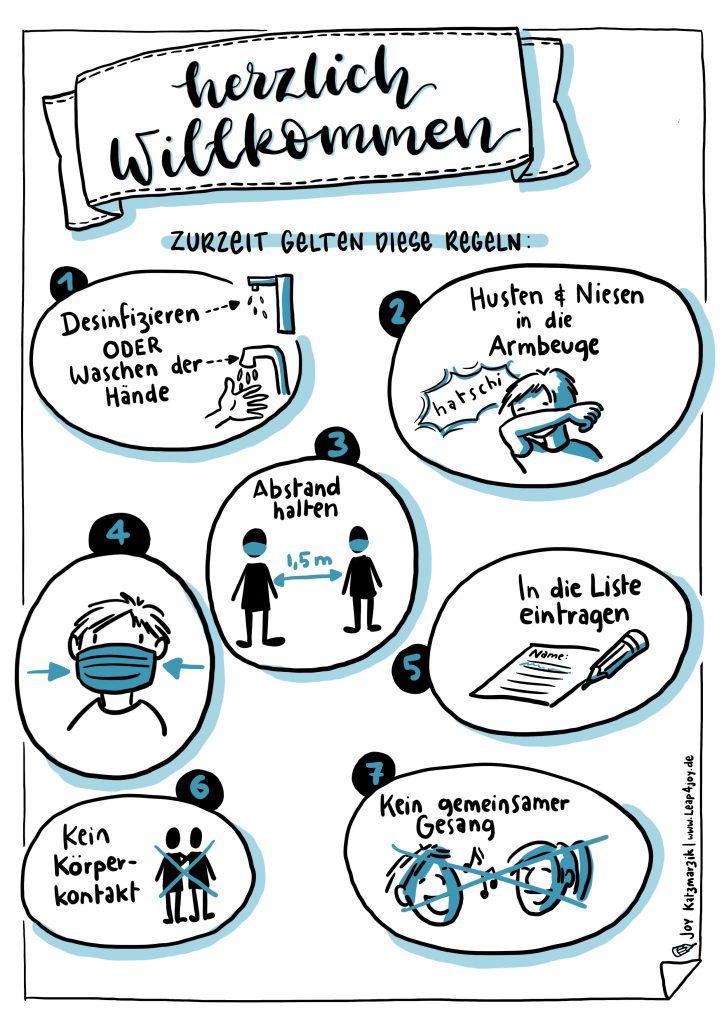 herzlich
Willkommen
ZURZEIT GELTEN DIESE REGELN:
1
Desinfizieren
ODER
Waschen der
Hände
2
Husten & Niesen
in die
Armbeuge
hatschi
3
Abstand
halten
1,5 m
4
In die Liste
eintragen
Name:
5
6
Kein
Körper-
kontakt
7
Kein gemeinsamer
Gesang
Joy Katzmarzik | www.Leap4joy.de